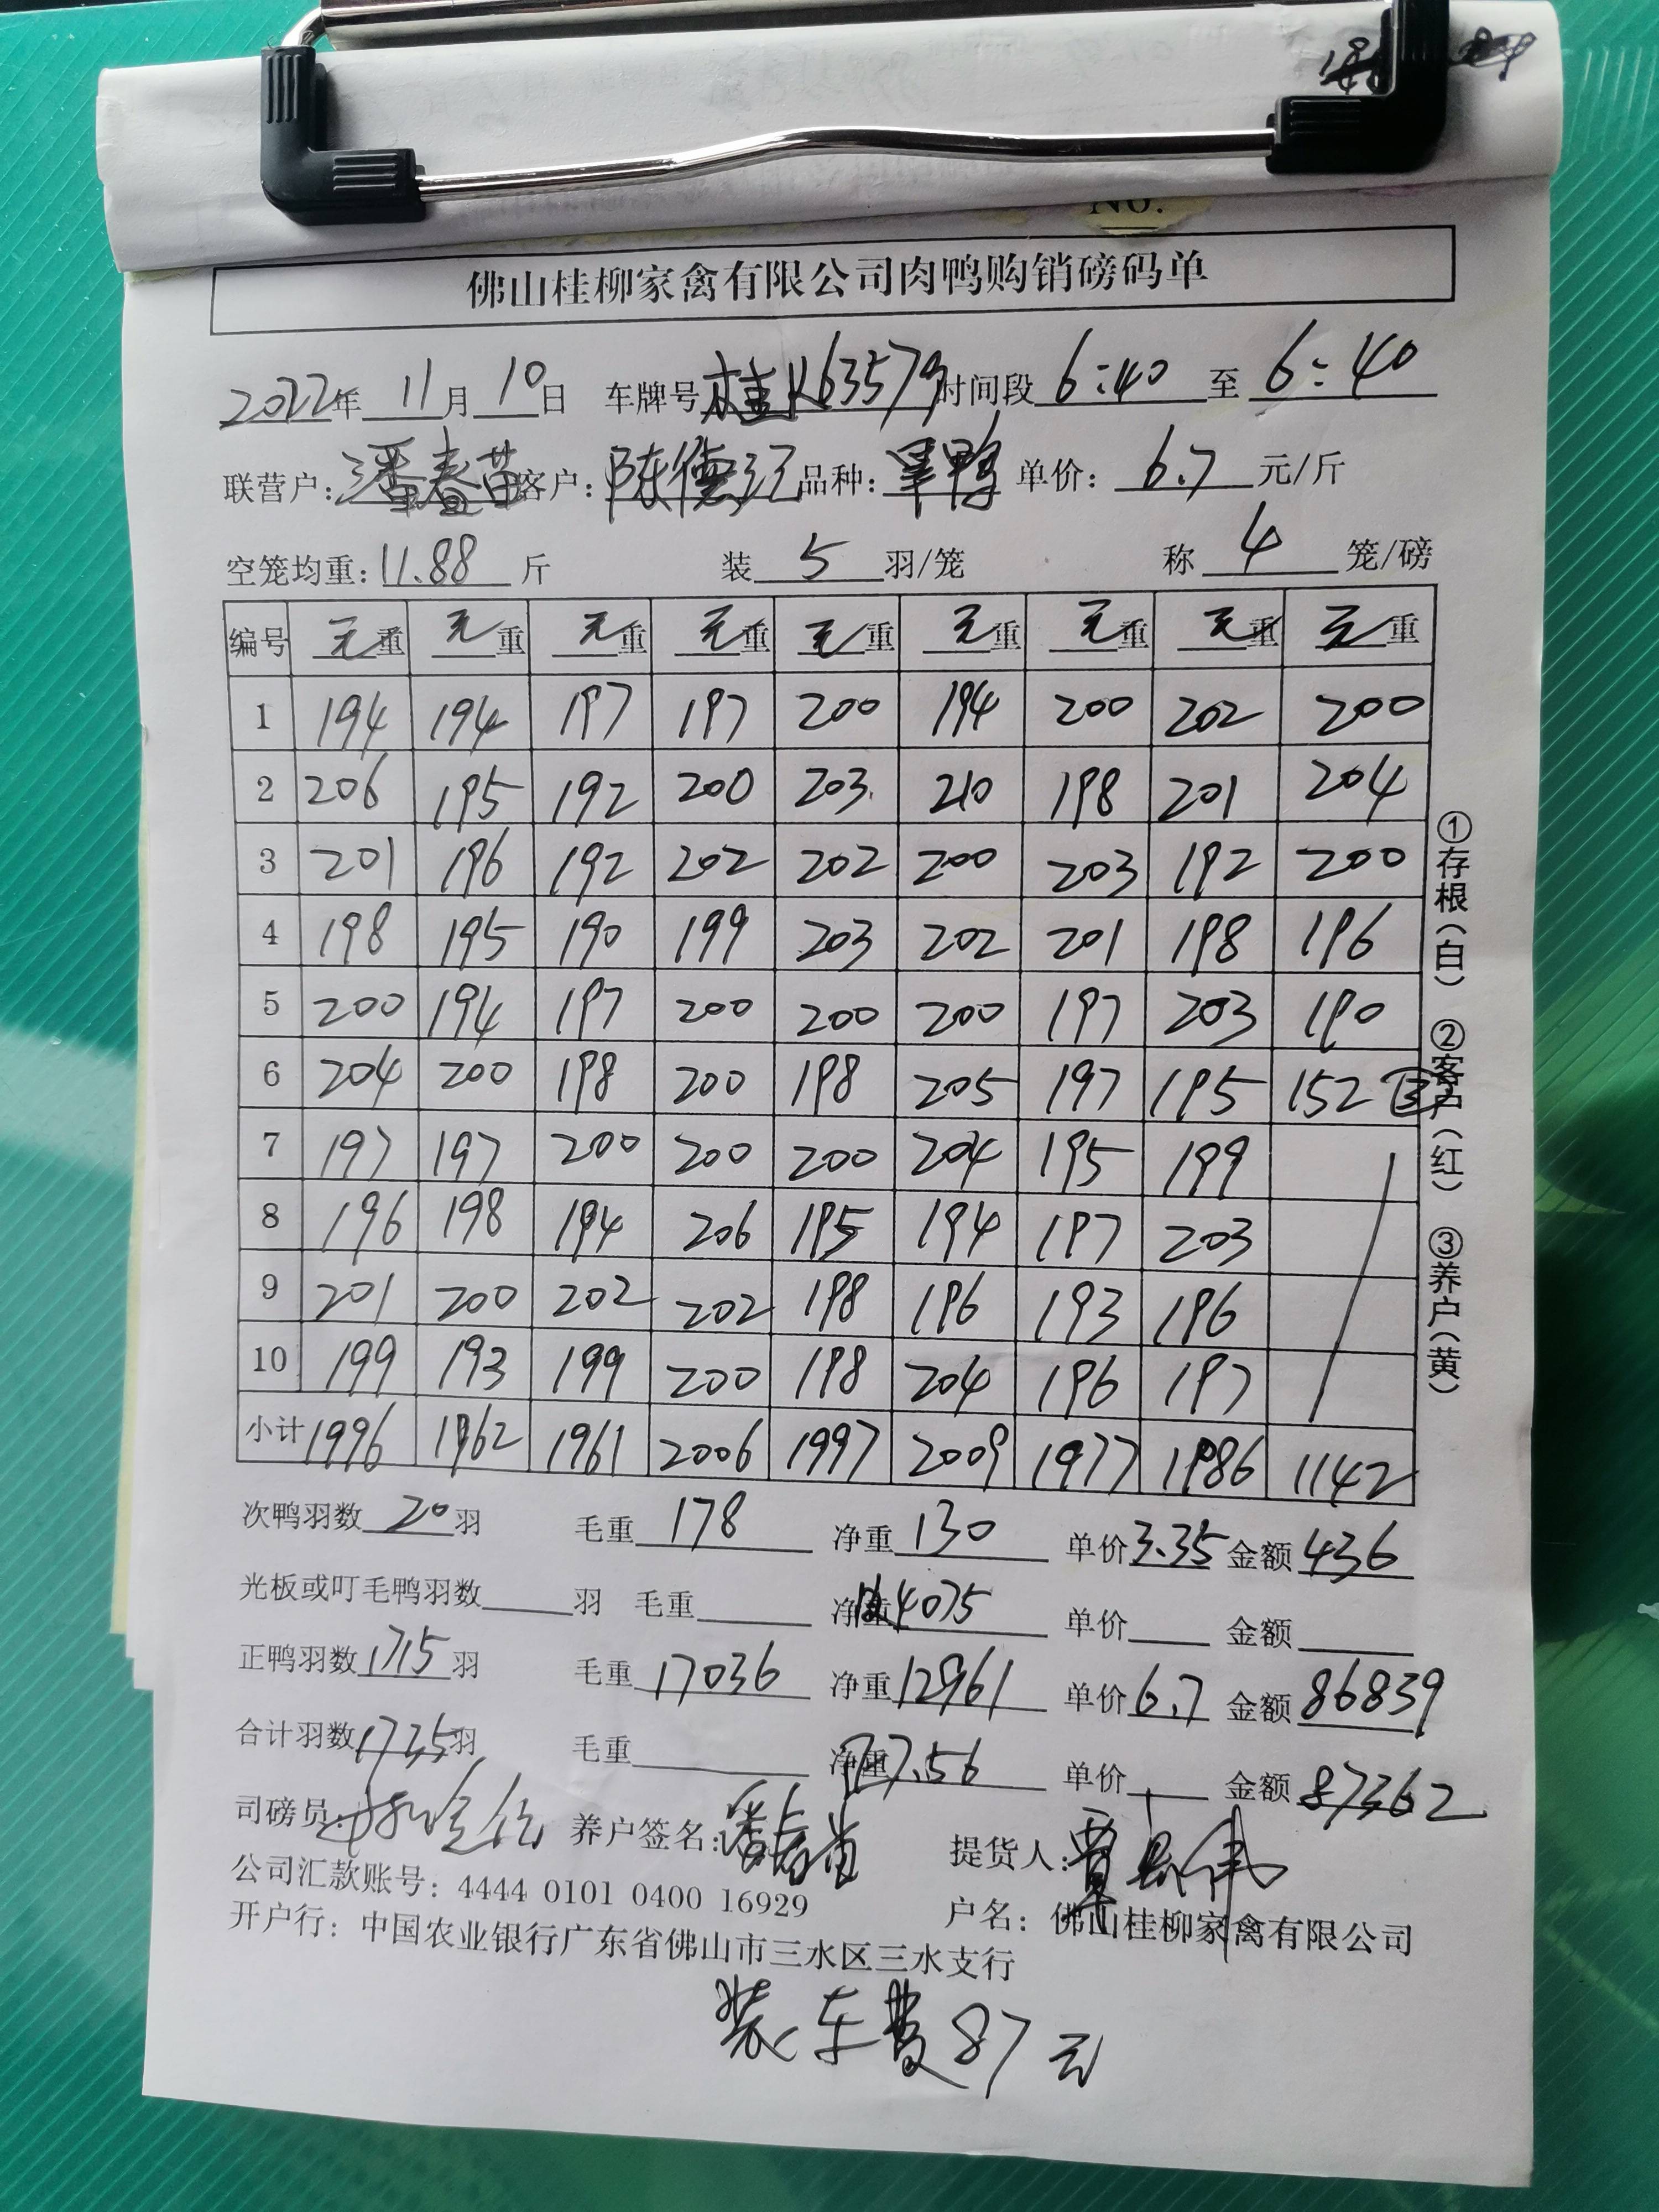 No.
佛山桂柳家禽有限公司肉鸭购销磅码单
2022年 11月 10日 车牌号 桂K63579 时间段 6:40 至 6:40
联营户: 潘春苗 客户: 陈德江 品种: 旱鸭 单价: 6.7 元/斤
空笼均重: 11.88 斤 装 5 羽/笼 称 4 笼/磅
编号 毛重 毛重 毛重 毛重 毛重 毛重 毛重 毛重 毛重
1 194 194 197 197 200 194 200 202 200
2 206 195 192 200 203 210 198 201 204
3 201 196 192 202 202 200 203 192 200
4 198 195 190 199 203 202 201 198 196
5 200 194 197 200 200 200 197 203 190
6 204 200 198 200 198 205 197 195 152 ③
7 197 197 200 200 200 204 195 199
8 196 198 194 206 195 194 197 203
9 201 200 202 202 198 196 193 196
10 199 193 199 200 198 204 196 197
小计 1996 1962 1961 2006 1997 2009 1977 1986 1142
次鸭羽数 20 羽 毛重 178 净重 130 单价 3.35 金额 436
光板或叮毛鸭羽数 羽 毛重 净重 4075 单价 金额
正鸭羽数 1715 羽 毛重 17036 净重 12961 单价 6.7 金额 86839
合计羽数 1735 羽 毛重 净重 7.56 单价 金额 87362
司磅员: 养户签名: 潘春苗 提货人:
公司汇款账号: 4444 0101 0400 16929 户名: 佛山桂柳家禽有限公司
开户行: 中国农业银行广东省佛山市三水区三水支行
装车费87元
①存根(白) ②客户(红) ③养户(黄)